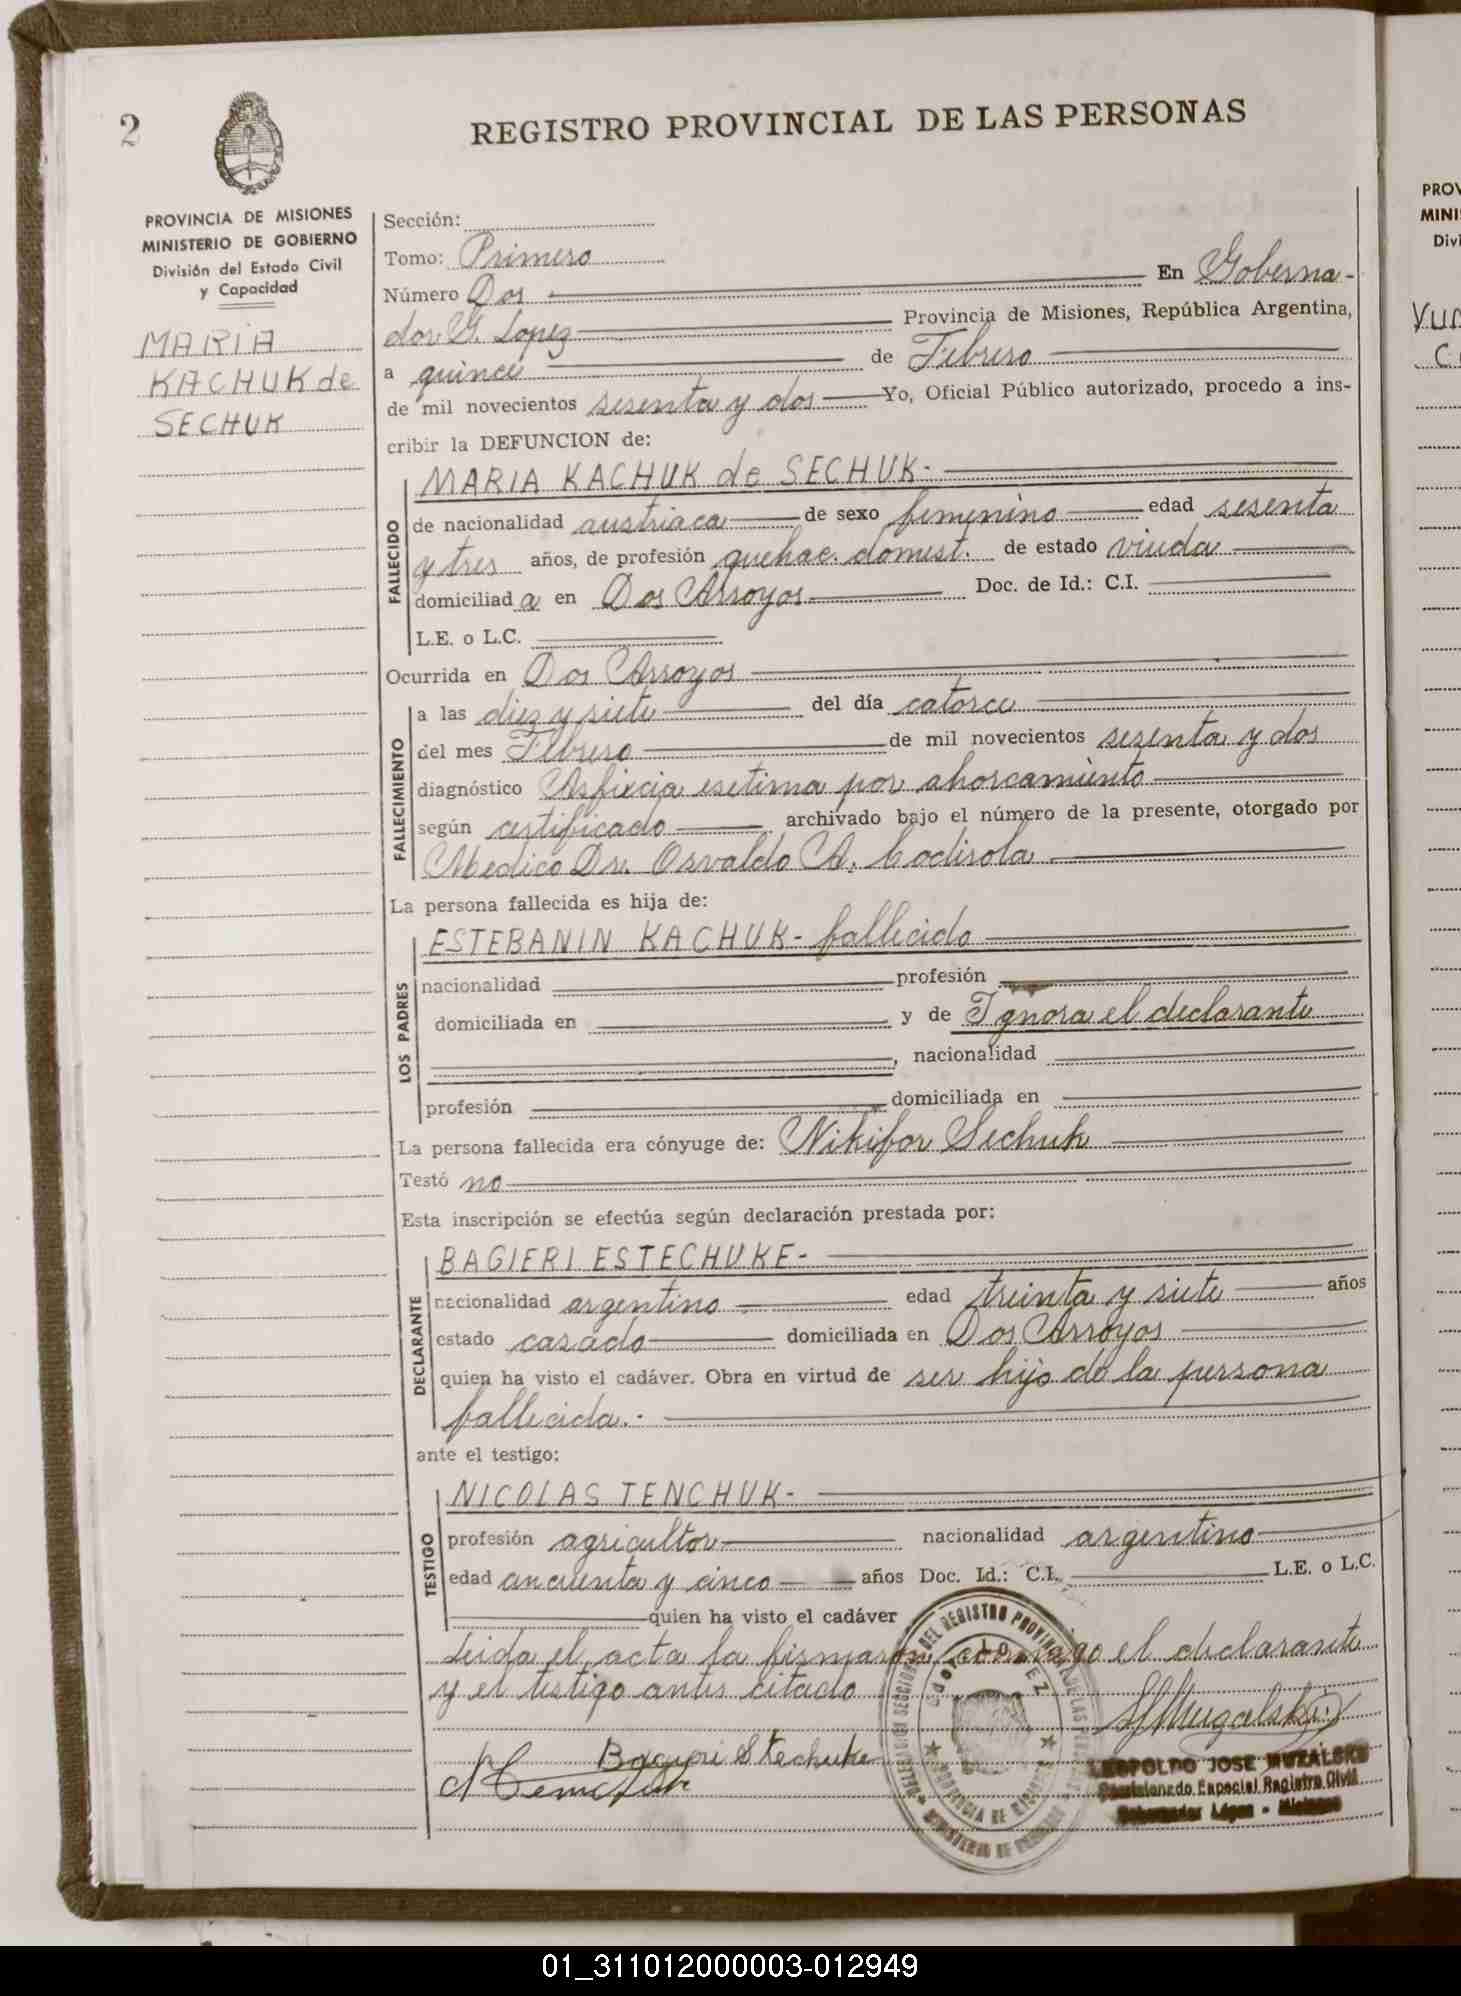 2
REGISTRO PROVINCIAL DE LAS PERSONAS
PROVINCIA DE MISIONES
MINISTERIO DE GOBIERNO
División del Estado Civil
y Capacidad
MARIA
KACHUK de
SECHUK
Sección:
Tomo: Primero
Número Dos En Goberna-
dor G. Lopez Provincia de Misiones, República Argentina,
a quince de Febrero
de mil novecientos sesenta y dos Yo, Oficial Público autorizado, procedo a ins-
cribir la DEFUNCION de:
FALLECIDO
MARIA KACHUK de SECHUK.-
de nacionalidad austriaca de sexo femenino edad sesenta
y tres años, de profesión quehac. domest. de estado viuda
domiciliada en Dos Arroyos Doc. de Id.: C.I.
L.E. o L.C.
Ocurrida en Dos Arroyos
FALLECIMIENTO
a las diez y siete del día catorce
del mes Febrero de mil novecientos sesenta y dos
diagnóstico Asfixia por ahorcamiento
según certificado archivado bajo el número de la presente, otorgado por
Medico Dr. Osvaldo A. Codisola
La persona fallecida es hija de:
LOS PADRES
ESTEBANIN KACHUK - fallecido
nacionalidad profesión
domiciliada en y de Ignora el declarante
, nacionalidad
profesión domiciliada en
La persona fallecida era cónyuge de: Nikifor Sechuk
Testó no
Esta inscripción se efectúa según declaración prestada por:
DECLARANTE
BAGIERI ESTECHUKE-
nacionalidad argentino edad treinta y siete años
estado casado domiciliada en Dos Arroyos
quien ha visto el cadáver. Obra en virtud de ser hijo de la persona
fallecida.-
ante el testigo:
TESTIGO
NICOLAS TENCHUK-
profesión agricultor nacionalidad argentino
edad cincuenta y cinco años Doc. Id.: C.I. L.E. o L.C.
quien ha visto el cadáver
Leida el acta la firmaron conmigo el declarante
y el testigo antes citado
Bagieri Stechuke
LEOPOLDO JOSE MUZALSKI
Comisionado Especial Registro Civil
Gobernador López - Misiones
PROV
MINI
Divi
01_311012000003-012949